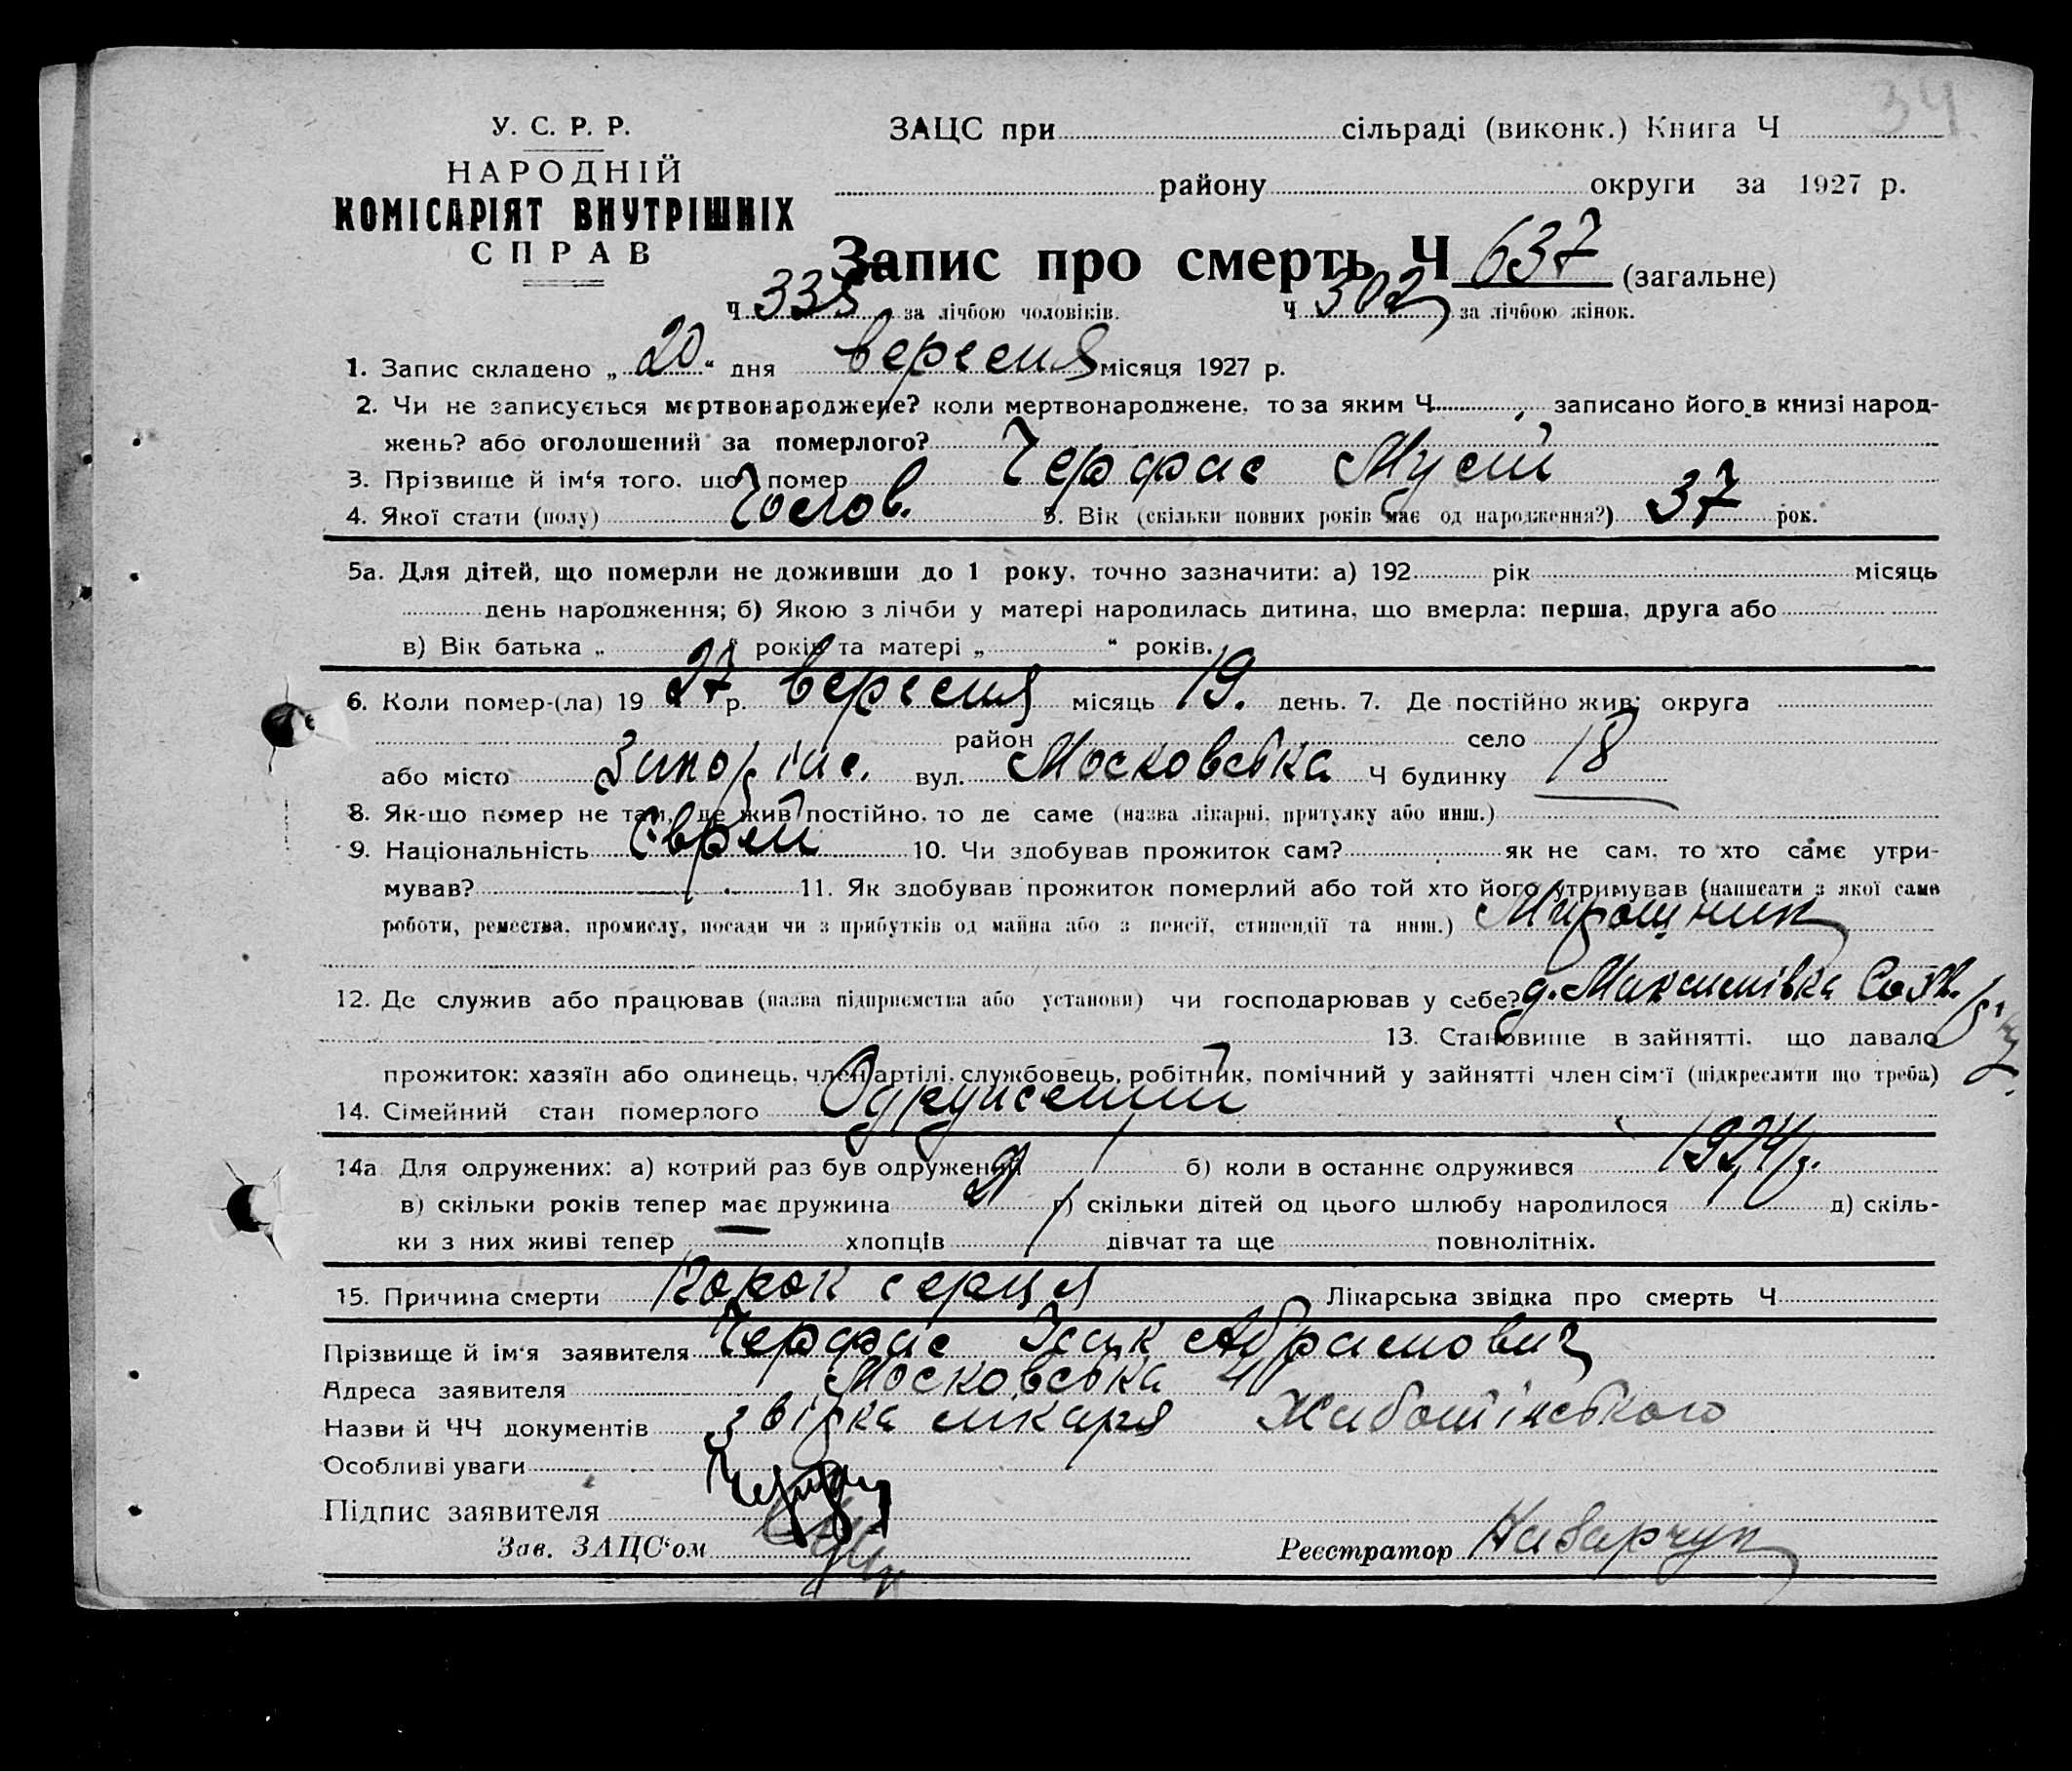 34
У. С. Р. Р.
НАРОДНІЙ
КОМІСАРІЯТ ВНУТРІШНІХ
СПРАВ
ЗАЦС при сільраді (виконк.) Книга Ч
району округи за 1927 р.
Запис про смерть Ч 637 (загальне)
Ч 335 за лічбою чоловіків. Ч 302 за лічбою жінок.
1. Запис складено „ 20 “ дня вересня місяця 1927 р.
2. Чи не записується мертвонароджене? коли мертвонароджене, то за яким Ч записано його в книзі народ-
жень? або оголошений за померлого?
3. Прізвище й ім‘я того, що помер Черфас Мусій
4. Якої стати (полу) Чолов. 5. Вік (скільки повних років має од народження?) 37 рок.
5а. Для дітей, що померли не доживши до 1 року, точно зазначити: а) 192 рік місяць
день народження; б) Якою з лічби у матері народилась дитина, що вмерла: перша, друга або
в) Вік батька „ “ років та матері „ “ років.
6. Коли помер-(ла) 19 27 р. вересня місяць 19. день. 7. Де постійно жив: округа
район село
або місто вул. Московська Ч будинку 18
8. Як-що помер не там, де жив постійно, то де саме (назва лікарні, притулку або инш.)
9. Національність Єврей 10. Чи здобував прожиток сам? як не сам, то хто саме утри-
мував? 11. Як здобував прожиток померлий або той хто його утримував (написати з якої саме
роботи, ремества, промислу, посади чи з прибутків од майна або з пенсії, стипендії та инш.) Мирошник
12. Де служив або працював (назва підприємства або установи) чи господарював у себе? д. Максимівка
13. Становище в зайнятті, що давало
прожиток: хазяїн або одинець, член артілі, службовець, робітник, помічний у зайнятті член сім‘ї (підкреслити що треба)
14. Сімейний стан померлого Одружений
14а. Для одружених: а) котрий раз був одружений 1 б) коли в останнє одружився 1924 р.
в) скільки років тепер має дружина г) скільки дітей од цього шлюбу народилося 1 д) скіль-
ки з них живі тепер — хлопців 1 дівчат та ще повнолітніх.
15. Причина смерти Порок серця Лікарська звідка про смерть Ч
Прізвище й ім‘я заявителя Черфас Ісак Абрамович
Адреса заявителя Московська
Назви й ЧЧ документів звідка лікаря Жаботінського
Особливі уваги
Підпис заявителя
Зав. ЗАЦС‘ом Реєстратор